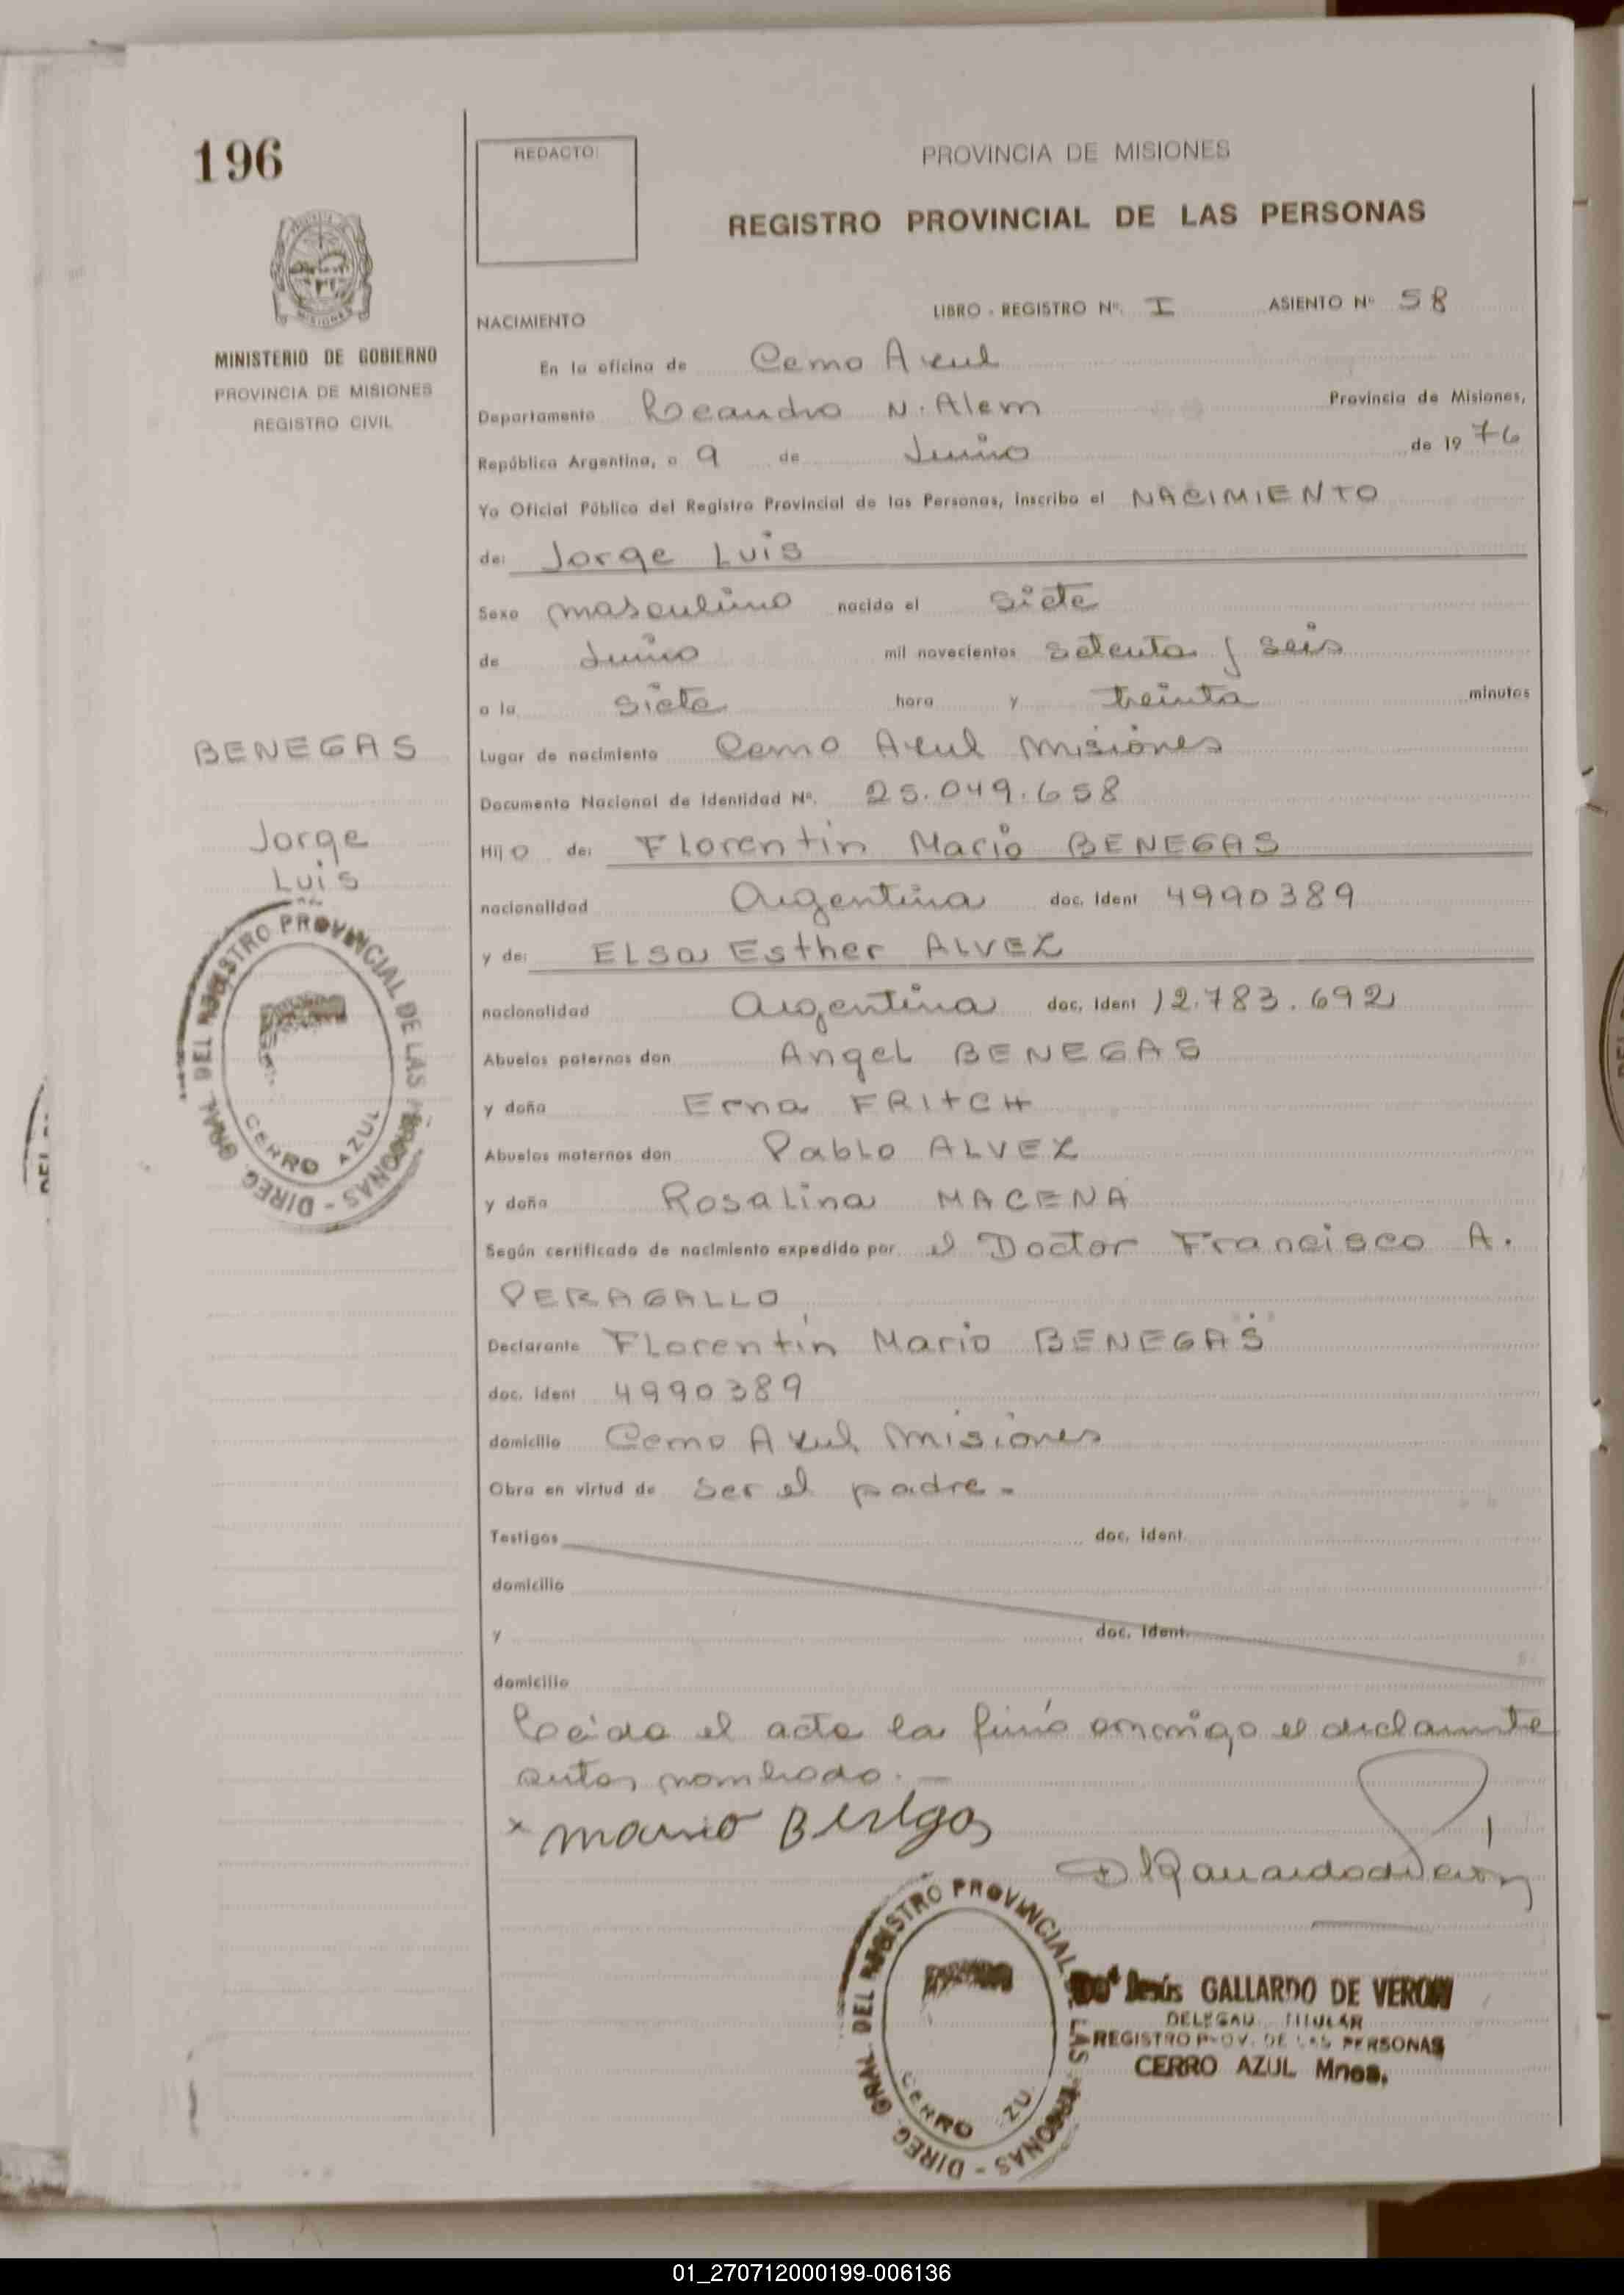 196
MISIONES
MINISTERIO DE GOBIERNO
PROVINCIA DE MISIONES
REGISTRO CIVIL
BENEGAS
Jorge
Luis
DIREC. GRAL. DEL REGISTRO PROVINCIAL DE LAS PERSONAS -
CERRO AZUL
REDACTO:
PROVINCIA DE MISIONES
REGISTRO PROVINCIAL DE LAS PERSONAS
NACIMIENTO LIBRO - REGISTRO Nº. I ASIENTO Nº 58
En la oficina de Cerro Azul
Departamento Leandro N. Alem Provincia de Misiones,
República Argentina, a 9 de Junio de 19 76
Yo Oficial Público del Registro Provincial de las Personas, inscribo el NACIMIENTO
de: Jorge Luis
Sexo masculino nacido el siete
de Junio mil novecientos setenta y seis
a la siete hora y treinta minutos
Lugar de nacimiento Cerro Azul Misiones
Documento Nacional de Identidad Nº. 25.049.658
Hijo de: Florentin Mario BENEGAS
nacionalidad Argentina doc. Ident 4990389
y de: Elsa Esther ALVEZ
nacionalidad Argentina doc. Ident 12.783.692
Abuelos paternos don Angel BENEGAS
y doña Erna FRITCH
Abuelos maternos don Pablo ALVEZ
y doña Rosalina MACENA
Según certificado de nacimiento expedido por el Doctor Francisco A.
PERAGALLO
Declarante Florentin Mario BENEGAS
doc. Ident 4990389
domicilio Cerro Azul Misiones
Obra en virtud de ser el padre.
Testigos doc. Ident.
domicilio
y doc. Ident.
domicilio
Leida el acta la firmó conmigo el declarante
antes nombrado.
x Mario Benegas
DIREC. GRAL. DEL REGISTRO PROVINCIAL LAS PERSONAS -
CERRO AZU
Jesús GALLARDO DE VERON
DELEGAD. TITULAR
REGISTRO PROV. DE LAS PERSONAS
CERRO AZUL Mnes.
01_270712000199-006136